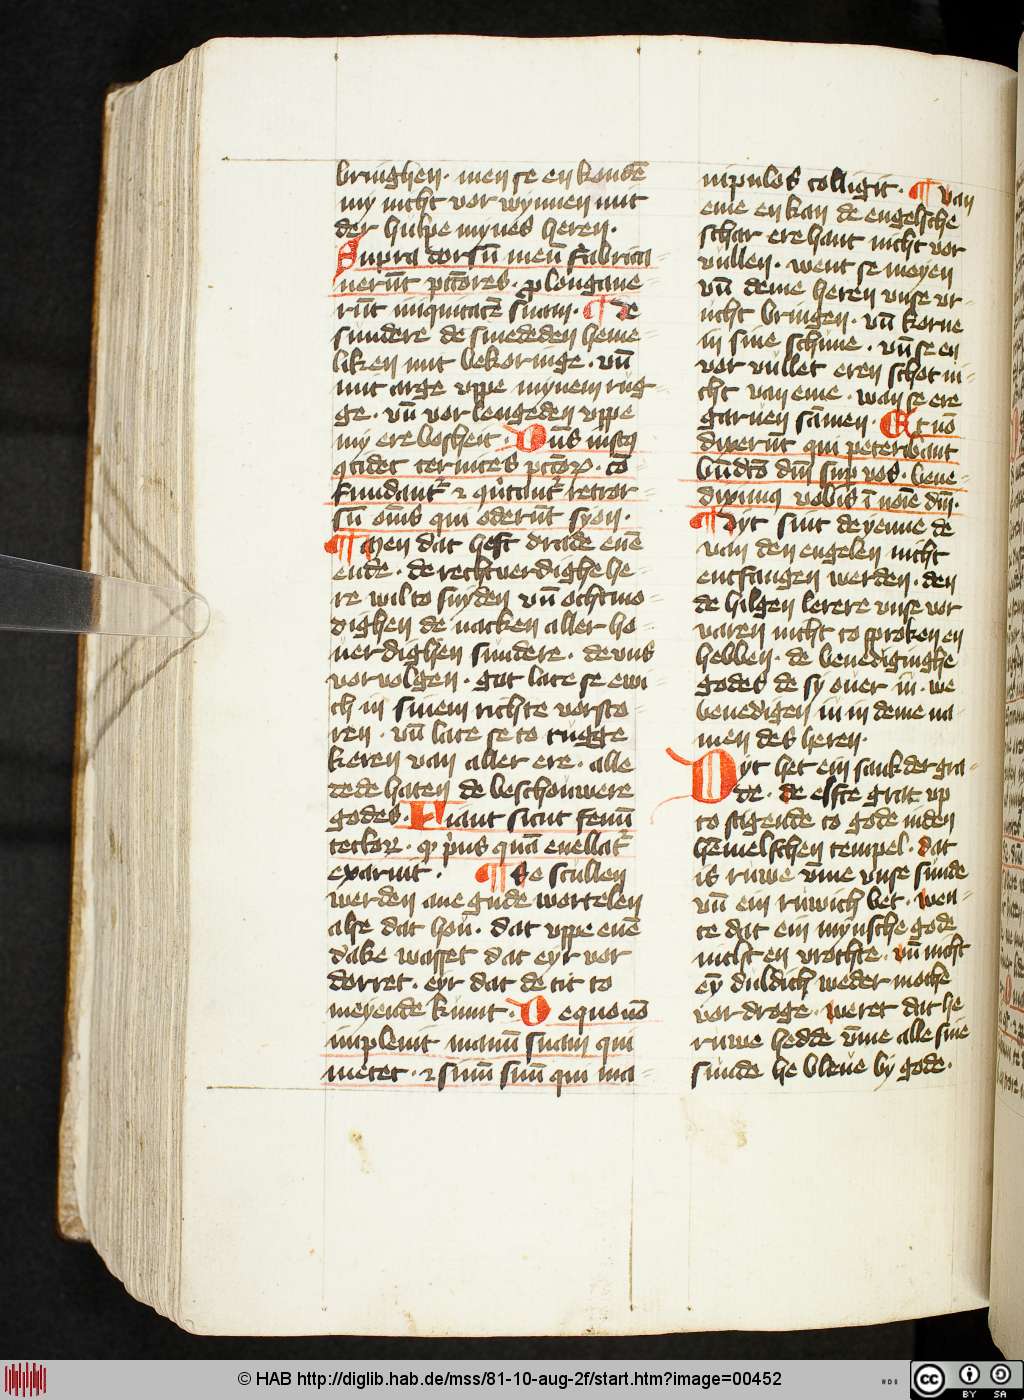 bringhen · men se en kondē
my nicht vor wynnen mit
der hulpe mynes heren ·
Supra dorsū meū fabrica
uerūt pctōres · plongaue
rūt iniquitatē suam · ¶ De
sundere de smededen heme
liken mit bekoringe · vn̄
mit arge vppe mynem rug
ge · vn̄ vor lengeden vppe
my ere bosheit · Dn̄s iustꝰ
ꝯcidet ceruices pctōꝝ · cō
fundantᷣ ⁊ ꝯūtantᷣ retror
sū om̄s qui oderūt syon ·
¶ Men dat heft drade enē
ende · de rechtverdighe he
re wil to snyden vn̄ othmo
dighen de nacken aller ho
uerdighen sundere · de vns
vorvolgen · got late se ewi
ch in sinem richte vorsto
ren · vn̄ late se to rugge
keren van aller ere · alle
de de haten de beschouwere
godes · Fiant sicut fenū
tectoꝝ · qͥ pᷣus quā euellatᷣ
exaruit · ¶ Se scullen
werden ane gude wortelen
alse dat hou · dat vppe enē
dake wasset dat eyr vor
dorret · eyr dat de tit to
meyende kumt · De quo nō
impleuit manū suam qui
metet · ⁊ sinū suū qui ma
nipulos colligit · ¶ Van
eme en kan de engelsche
schar ere hant nicht vor
vullen · went se moyen
vn̄ deme heren vnse vr
ucht bringen · vn̄ korne
in sine schune · vn̄ se en
vor vullet eren schot ni
cht van eme · wan se ere
garuen sāmen · Et nō
dixerūt qui pͤteribant
bn̄dctō dn̄i sup vos · bene
diximꝰ vobis ī noīe dn̄i ·
¶ Dyt sint de yenne de
van den engelen nicht
entfangen werden · den
de hilgen lerere vnse vor
varen nicht to sproken en
hebben · de benediginghe
godes de sy ouer iu · we
benedigen iu in deme na
men des heren ·
Dyt het ein sank der gra
de · de elfte grat vp
to stigende to gode inden
hemelschen tempel · dat
is ruwe vm̄e vnse sunde
vn̄ ein ruwich bet · wen
te dat ein mynsche gode
nilst en vrochte · vn̄ nicht
eȳ duldich weder mothe
vordroge · weret dat he
ruwe hedde vm̄e alle sine
sunde he bleue by gode ·
© HAB http://diglib.hab.de/mss/81-10-aug-2f/start.htm?image=00452
HAB
cc BY SA